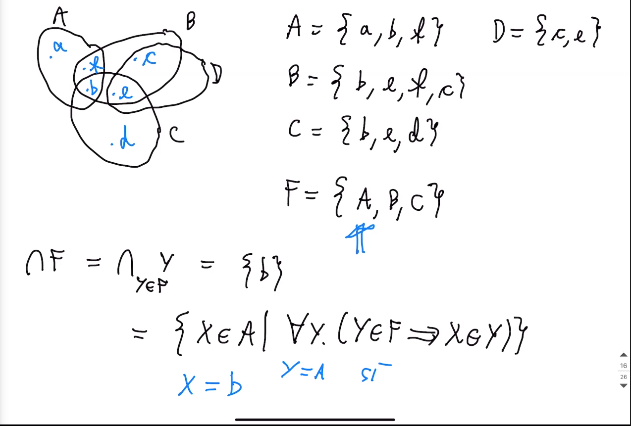 A
B
a
f
c
D
b
e
d
C
A = {a, b, f}
D = {c, e}
B = {b, e, f, c}
C = {b, e, d}
F = {A, B, C}
⇑
∩F = ∩_{Y∈F} Y = {b}
= {X∈A | ∀Y. (Y∈F ⇒ X∈Y)}
X = b
Y = A
16
26